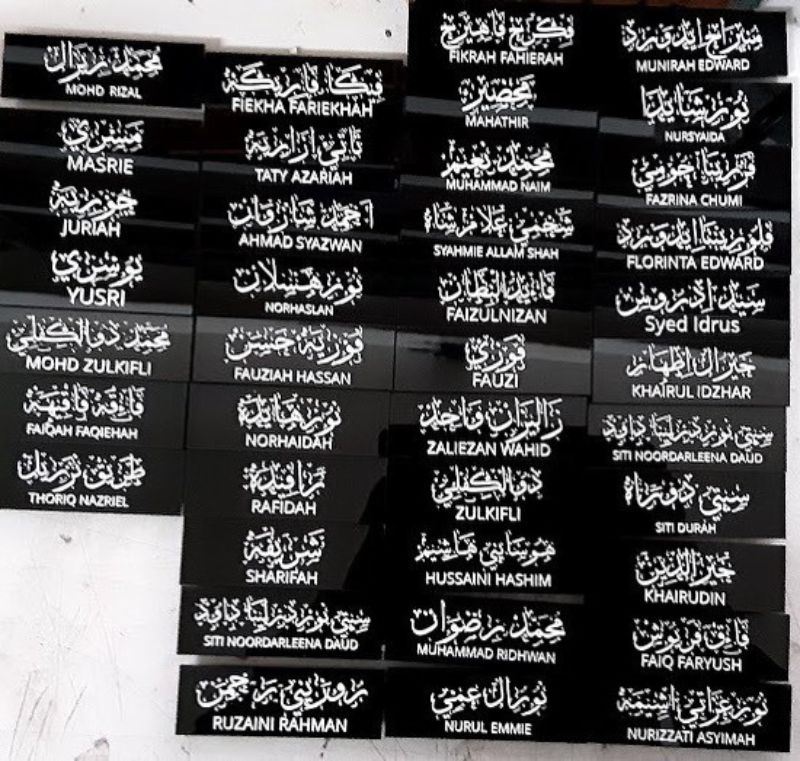 محمد ريزال
MOHD RIZAL
مسري
MASRIE
جوريه
JURIAH
يوسري
YUSRI
محمد ذوالکفلي
MOHD ZULKIFLI
فائقه فاقيهه
FAIQAH FAQIEHAH
طريق نزريل
THORIQ NAZRIEL
فيکا فاريکه
FIEKHA FARIEKHAH
تاتي ازاريه
TATY AZARIAH
احمد شازوان
AHMAD SYAZWAN
نورهسلان
NORHASLAN
فوزيه حسن
FAUZIAH HASSAN
نورهايده
NORHAIDAH
رافيده
RAFIDAH
شريفه
SHARIFAH
سيتي نوردرلينا داود
SITI NOORDARLEENA DAUD
روزيني رحمن
RUZAINI RAHMAN
فکرح فاهيرح
FIKRAH FAHIERAH
محصير
MAHATHIR
محمد نعيم
MUHAMMAD NAIM
شحمي علام شاه
SYAHMIE ALLAM SHAH
فايدالنظان
FAIZULNIZAN
فوزي
FAUZI
زاليزان واحد
ZALIEZAN WAHID
ذوالکفلي
ZULKIFLI
هوسايني هاشيم
HUSSAINI HASHIM
محمد رضوان
MUHAMMAD RIDHWAN
نورال عمي
NURUL EMMIE
منيرح ايدورد
MUNIRAH EDWARD
نورشايدا
NURSYAIDA
فزرينا چومي
FAZRINA CHUMI
فلورينتا ايدورد
FLORINTA EDWARD
سيد ادروس
Syed Idrus
خيرال اظهار
KHAIRUL IDZHAR
سيتي نوردرلينا داود
SITI NOORDARLEENA DAUD
سيتي دوراه
SITI DURAH
خيرالدين
KHAIRUDIN
فائق فريوش
FAIQ FARYUSH
نورعزاتي اشيمه
NURIZZATI ASYIMAH